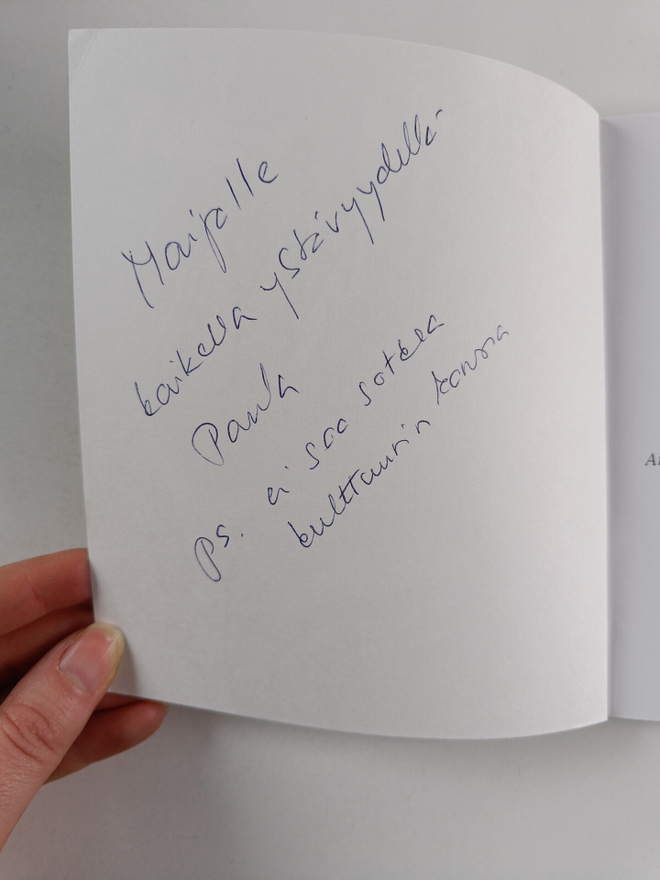 Maijalle
kaikella ystävyydellä
Paula
ps. ei saa sotkea
kulttuurin kanssa